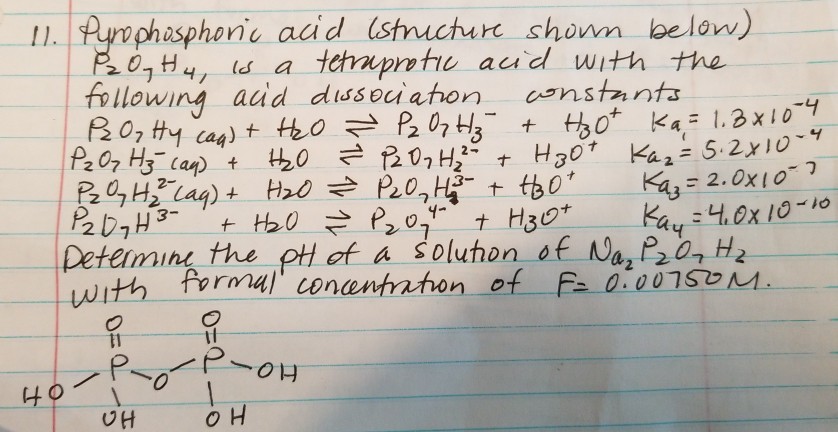 11. Pyrophosphoric acid (structure shown below)
P₂O₇H₄, is a tetraprotic acid with the
following acid dissociation constants
P₂O₇H₄ (aq) + H₂O ⇌ P₂O₇H₃⁻ + H₃O⁺ Ka₁ = 1.3x10⁻⁴
P₂O₇H₃⁻ (aq) + H₂O ⇌ P₂O₇H₂²⁻ + H₃O⁺ Ka₂ = 5.2x10⁻⁴
P₂O₇H₂²⁻ (aq) + H₂O ⇌ P₂O₇H³⁻ + H₃O⁺ Ka₃ = 2.0x10⁻⁷
P₂O₇H³⁻ + H₂O ⇌ P₂O₇⁴⁻ + H₃O⁺ Ka₄ = 4.0x10⁻¹⁰
Determine the pH of a solution of Na₂P₂O₇H₂
with formal concentration of F= 0.00750M.
O O
P P OH
HO O
OH OH